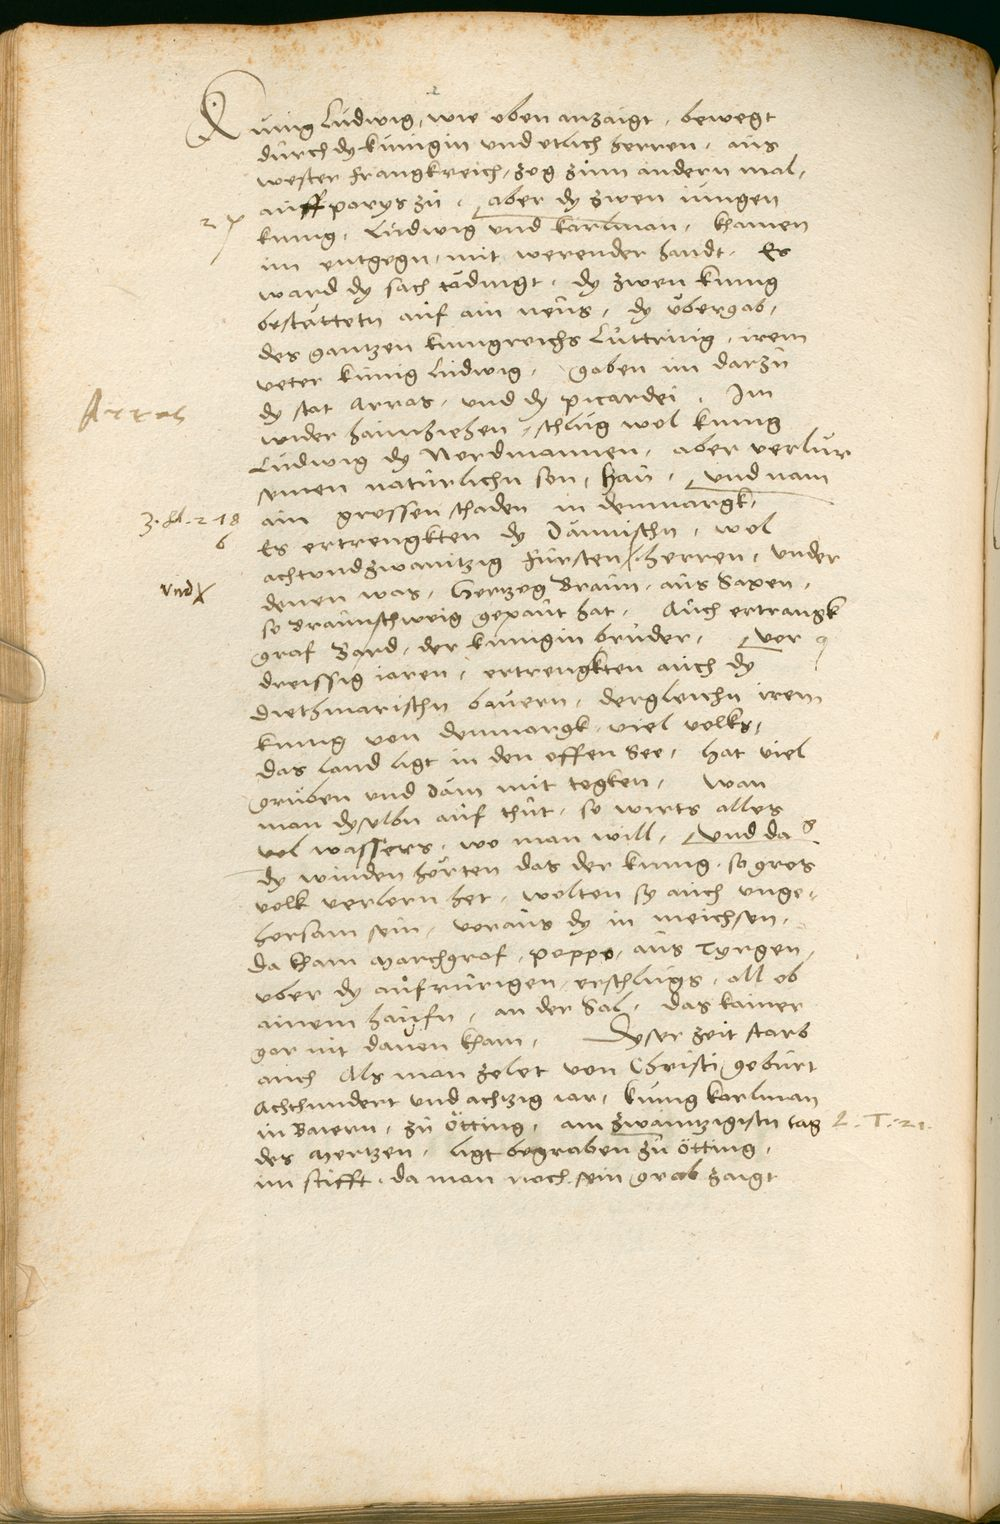 Kunig Ludwig, wie oben anzaigt, bewegt
durch dy kunigin und etlich herren, aus
wester Frangkreich, zog zum andern mal,
auff parys zu, aber dy zwen jungen
kunig, Ludwig und karlman, khamen
im entgegn, mit werender handt. Es
ward dy sach tädingt, dy zwen kunig
bestättetn auf ain neus, dy übergab,
des gantzen kunigreichs Luttring, irem
veter kunig Ludwig, gaben im darzu
Arras
dy stat Arras, und dy picardei. Im
wider haimziehen, schlug wol kunig
Ludwig dy Nordmannen, aber verlur
seinen natürlichn son, Hau, und nam
ain grossen schaden in denmargk,
Es ertrengkten dy Dännischn, wol
achtundzwaintzig Fürsten herren, under
Vnd
denen was, Hertzog Braun, aus Saxen,
so Braunschweig gepaut hat. Auch ertrangk
graf Bard, der kunigin bruder, vor
dreissig jaren, ertrengkten auch dy
diethmarischn bauern, dergleichn irem
kunig von denmargk viel volks,
das land ligt in den offen See, hat viel
gruben und däm mit togken, wan
man dyselbn auf thut, so wirts alles
vol wassers, wo man will, und da
dy winden hörten das der kunig, so gros
volk verlorn het, wolten sy auch unge-
horsam sein, voraus dy in meichsen,
da kham marchgraf, poppo, aus Tyrgen,
uber dy aufrurigen, erschlugs, all ob
ainem haufn, an der Sal, das kainer
gar nit davon kham, Dyser zeit starb
auch Als man zelet von Christi geburt
Achthundert und achtzig jar, kunig karlman
in Baiern, zu ötting, am zwaintzigistn tag
des Mertzen, ligt begraben zu ötting,
im stifft, da man noch sein grab zaigt